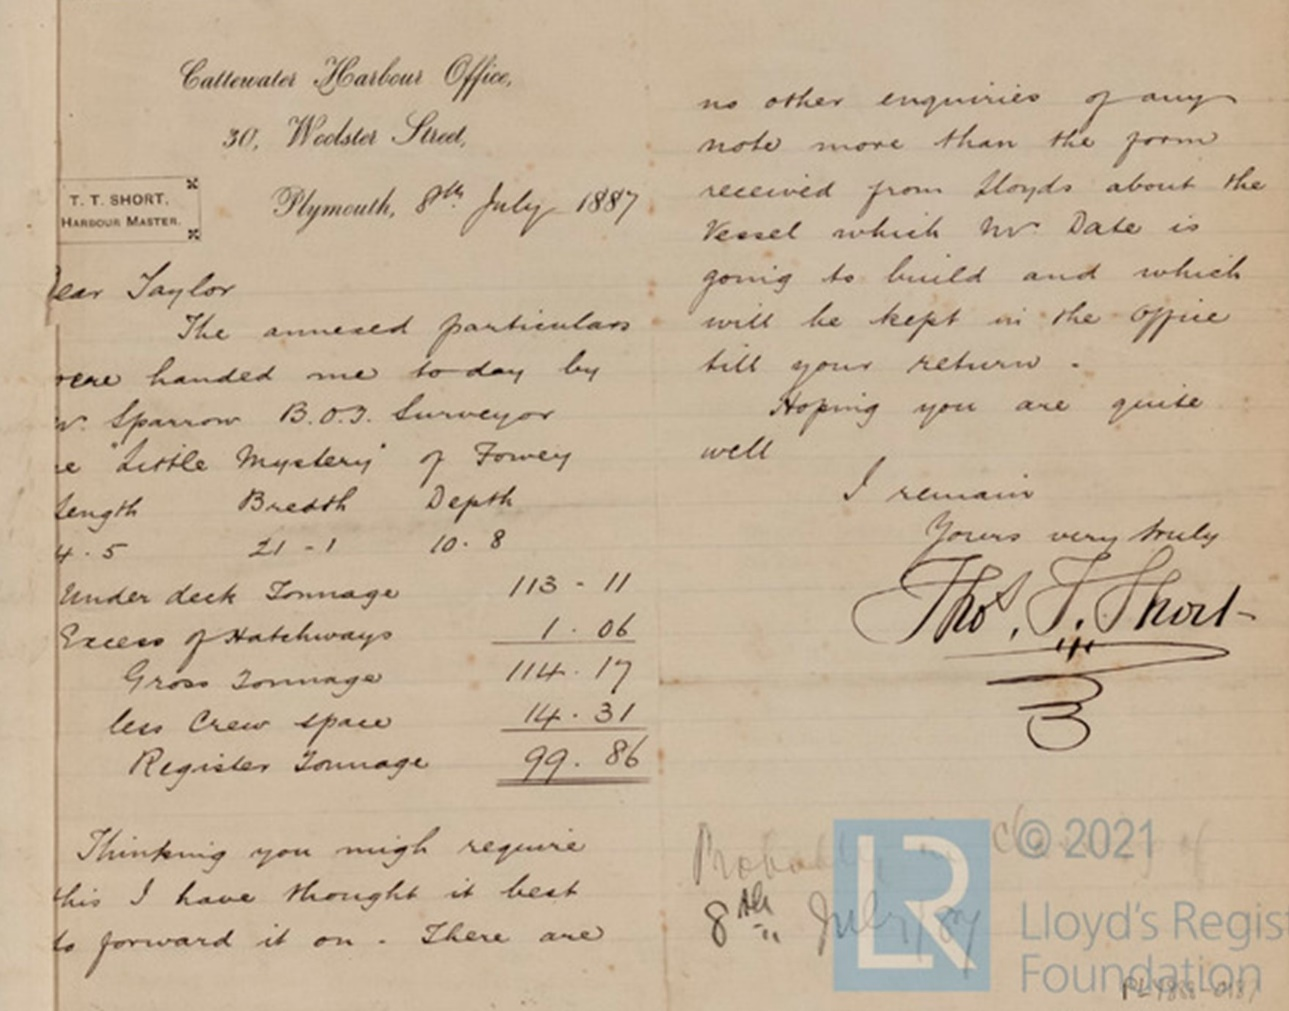 Cattewater Harbour Office,
30, Woolster Street,
T. T. SHORT,
HARBOUR MASTER.
Plymouth, 8th July 1887
ear Taylor
The annexed particulars
were handed me to-day by
r. Sparrow B.O.T. Surveyor
re "Little Mystery" of Fowey
Length Breadth Depth
4.5 21-1 10.8
Under deck Tonnage 113-11
Excess of Hatchways 1.06
Gross Tonnage 114.17
less Crew space 14.31
Register Tonnage 99.86
Thinking you migh require
this I have thought it best
to forward it on. There are
no other enquiries of any
note more than the form
received from Lloyds about the
Vessel which Mr. Date is
going to build and which
will be kept in the Office
till your return.
Hoping you are quite
well
I remain
Yours very truly
Thos. T. Short
8th July/87
© 2021
LR
Lloyd's Regis
Foundation